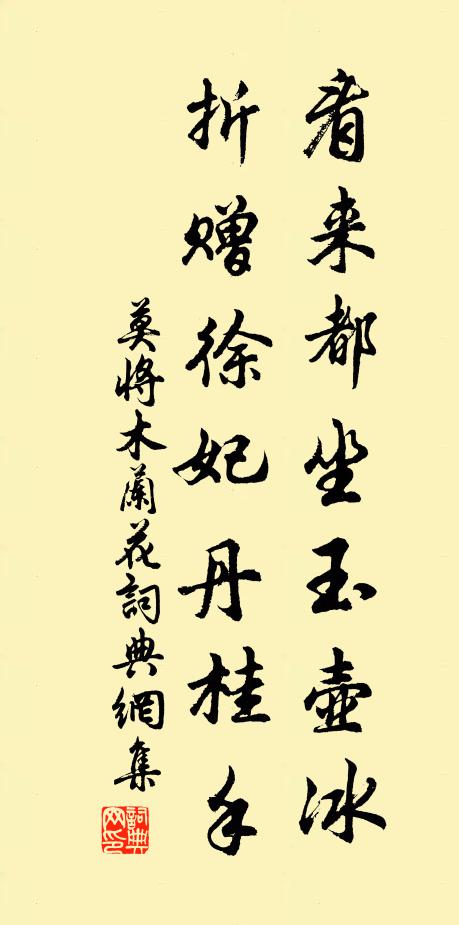 看来都坐玉壺冰
折赠徐妃丹桂手
莫將木蘭花詞典網集
詞典网印